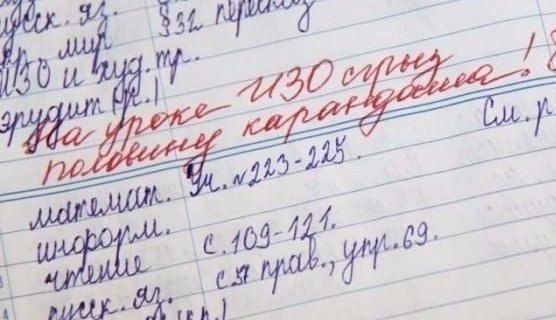 русск. яз. §32 пересказ
окр. мир
ИЗО и худ. тр.
эрудит (к.)
На уроке ИЗО сгрыз
половину карандаша!
См. р
математ. Уч. №223-225.
информ.
чтение с. 109-121.
русск. яз. прав., упр. 69.